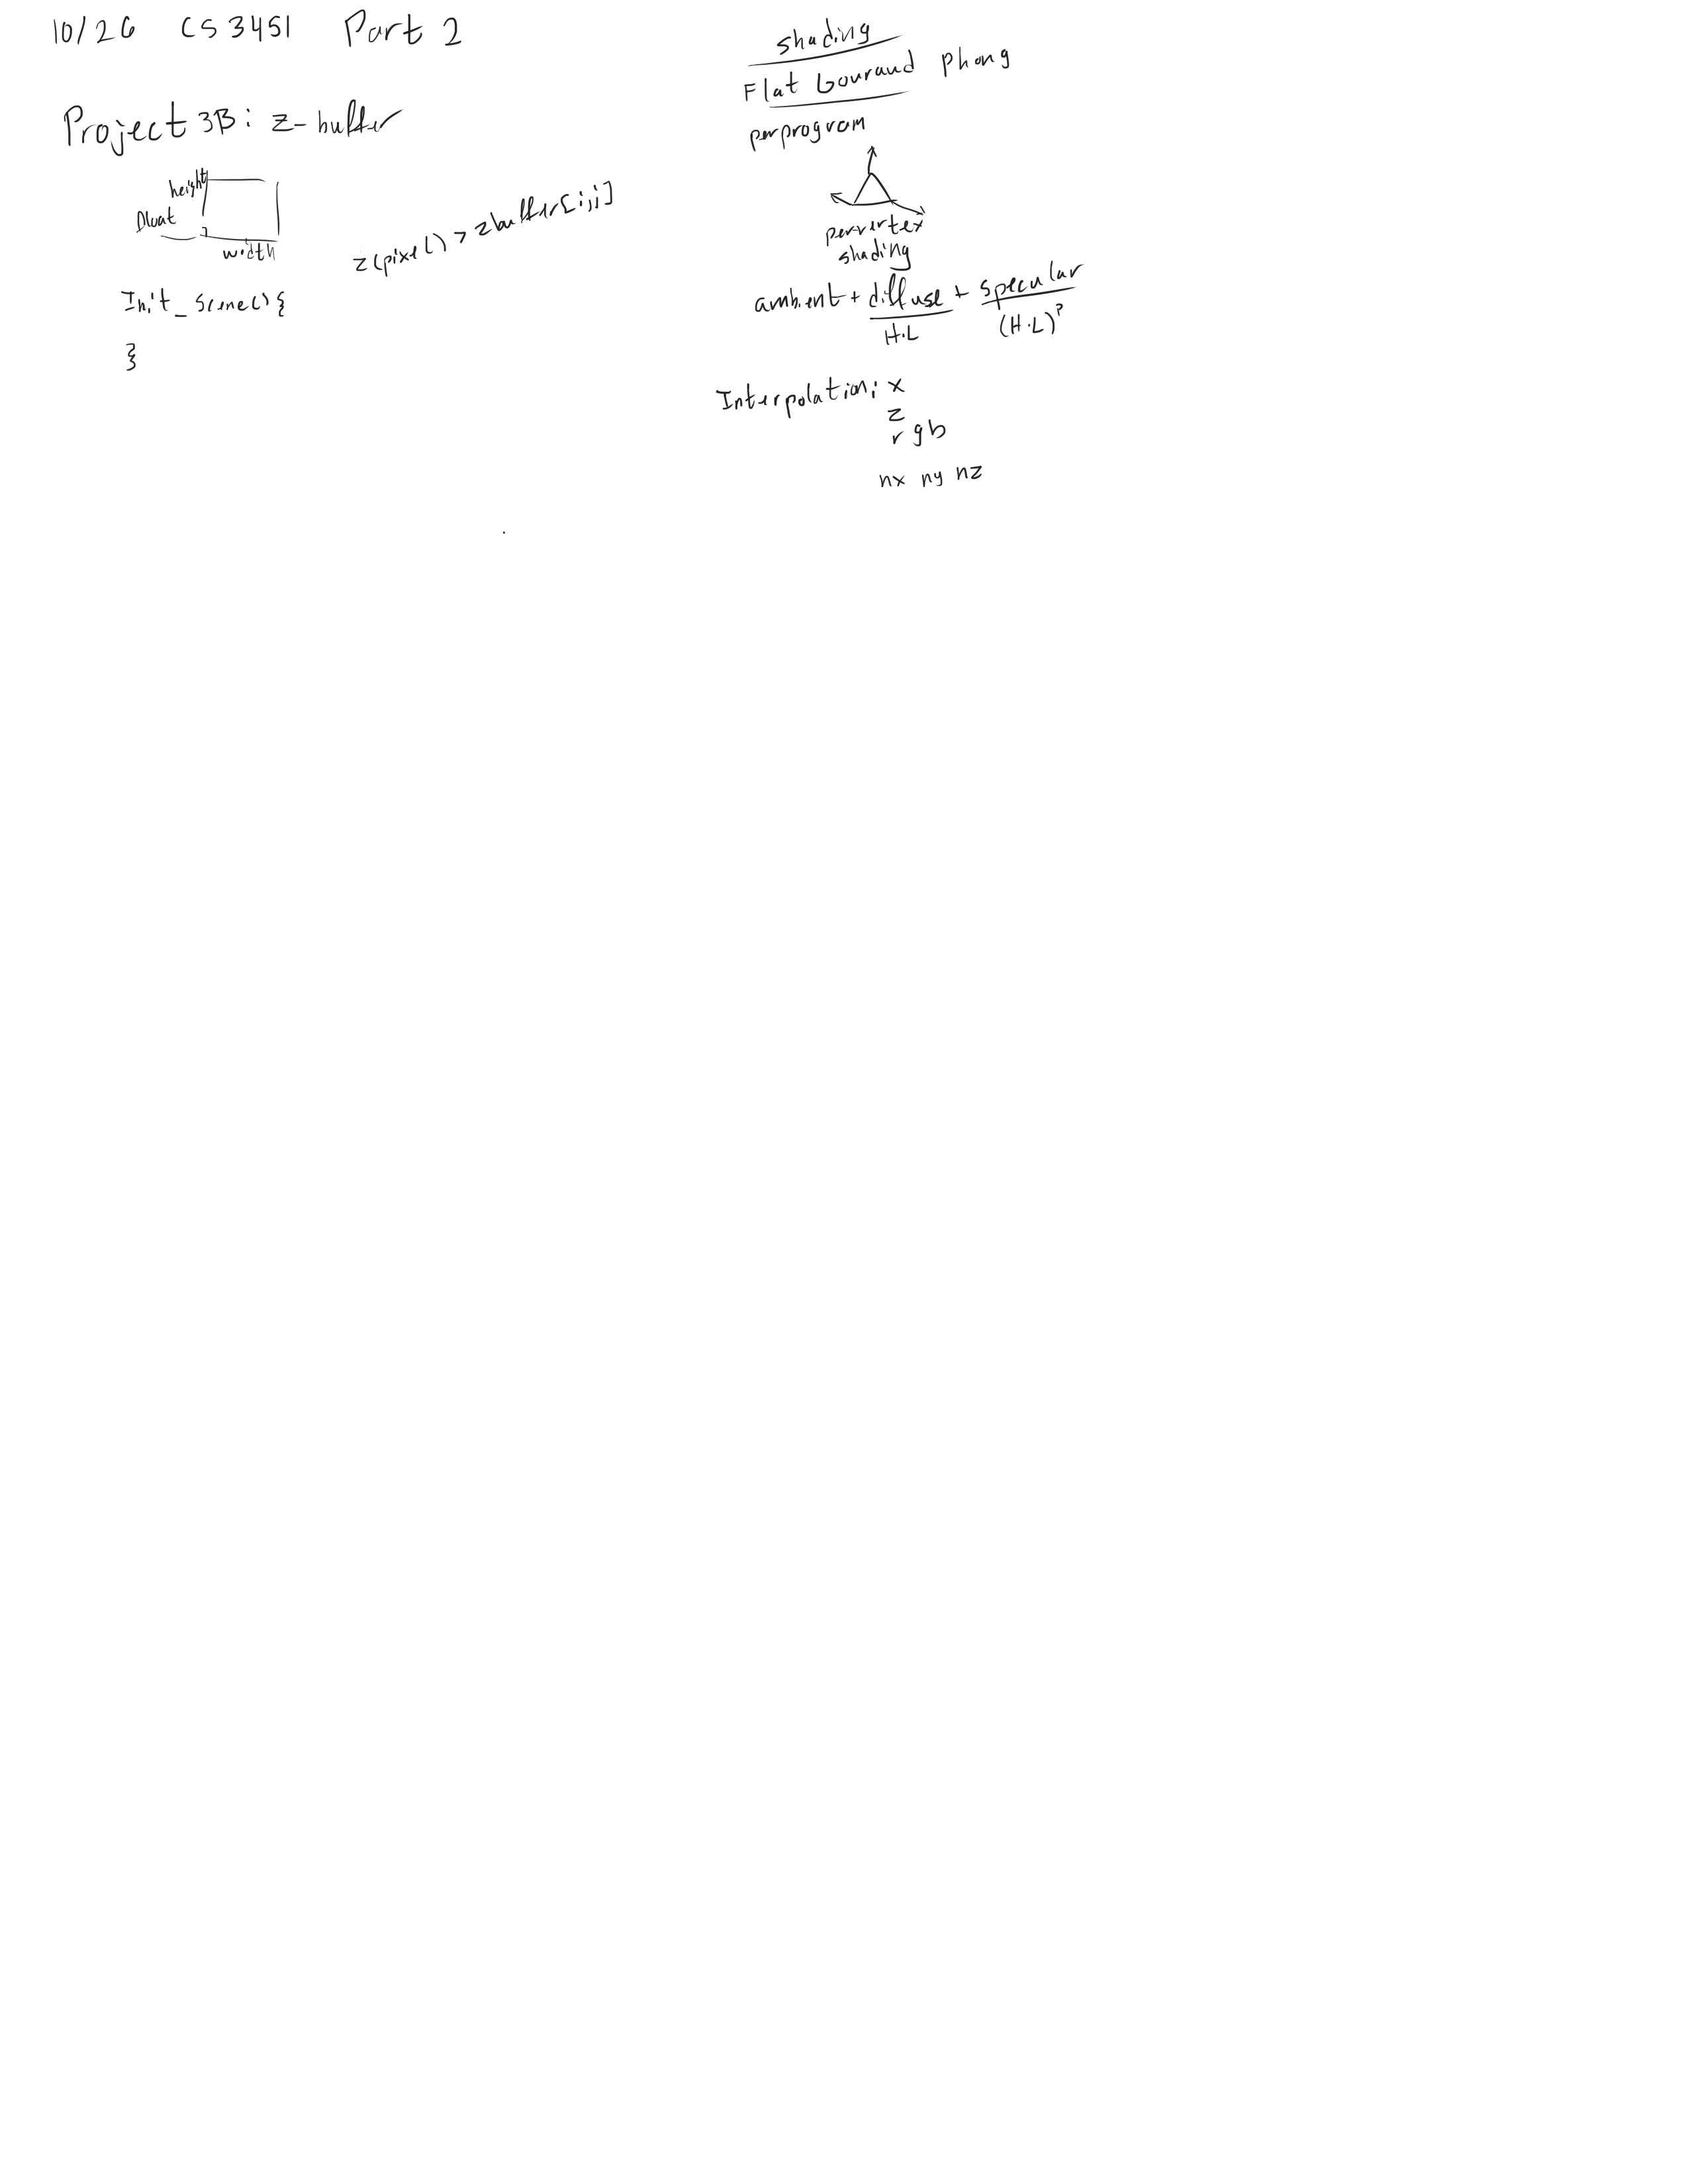 10/26 CS 3451 Part 2
Project 3B: z-buffer
height
float
width
z(pixel) > zbuffer[i,j]
Init_Scene() {
}
shading
Flat Gouraud Phong
per program
per vertex
shading
ambient + diffuse + specular
H·L (H·L)^P
Interpolation: x
z
r g b
nx ny nz